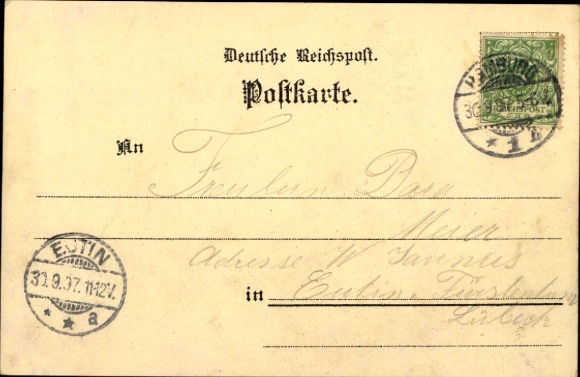 Deutsche Reichspost.
Postkarte.
HAMBURG
30.9.97
REICHSPOST
* 1 h
An
Freulein Dora
Meier
Adresse W Jannus
in Eutin. Fürstentum
Lübeck
EUTIN
30.9.97. 11-12V.
* * a